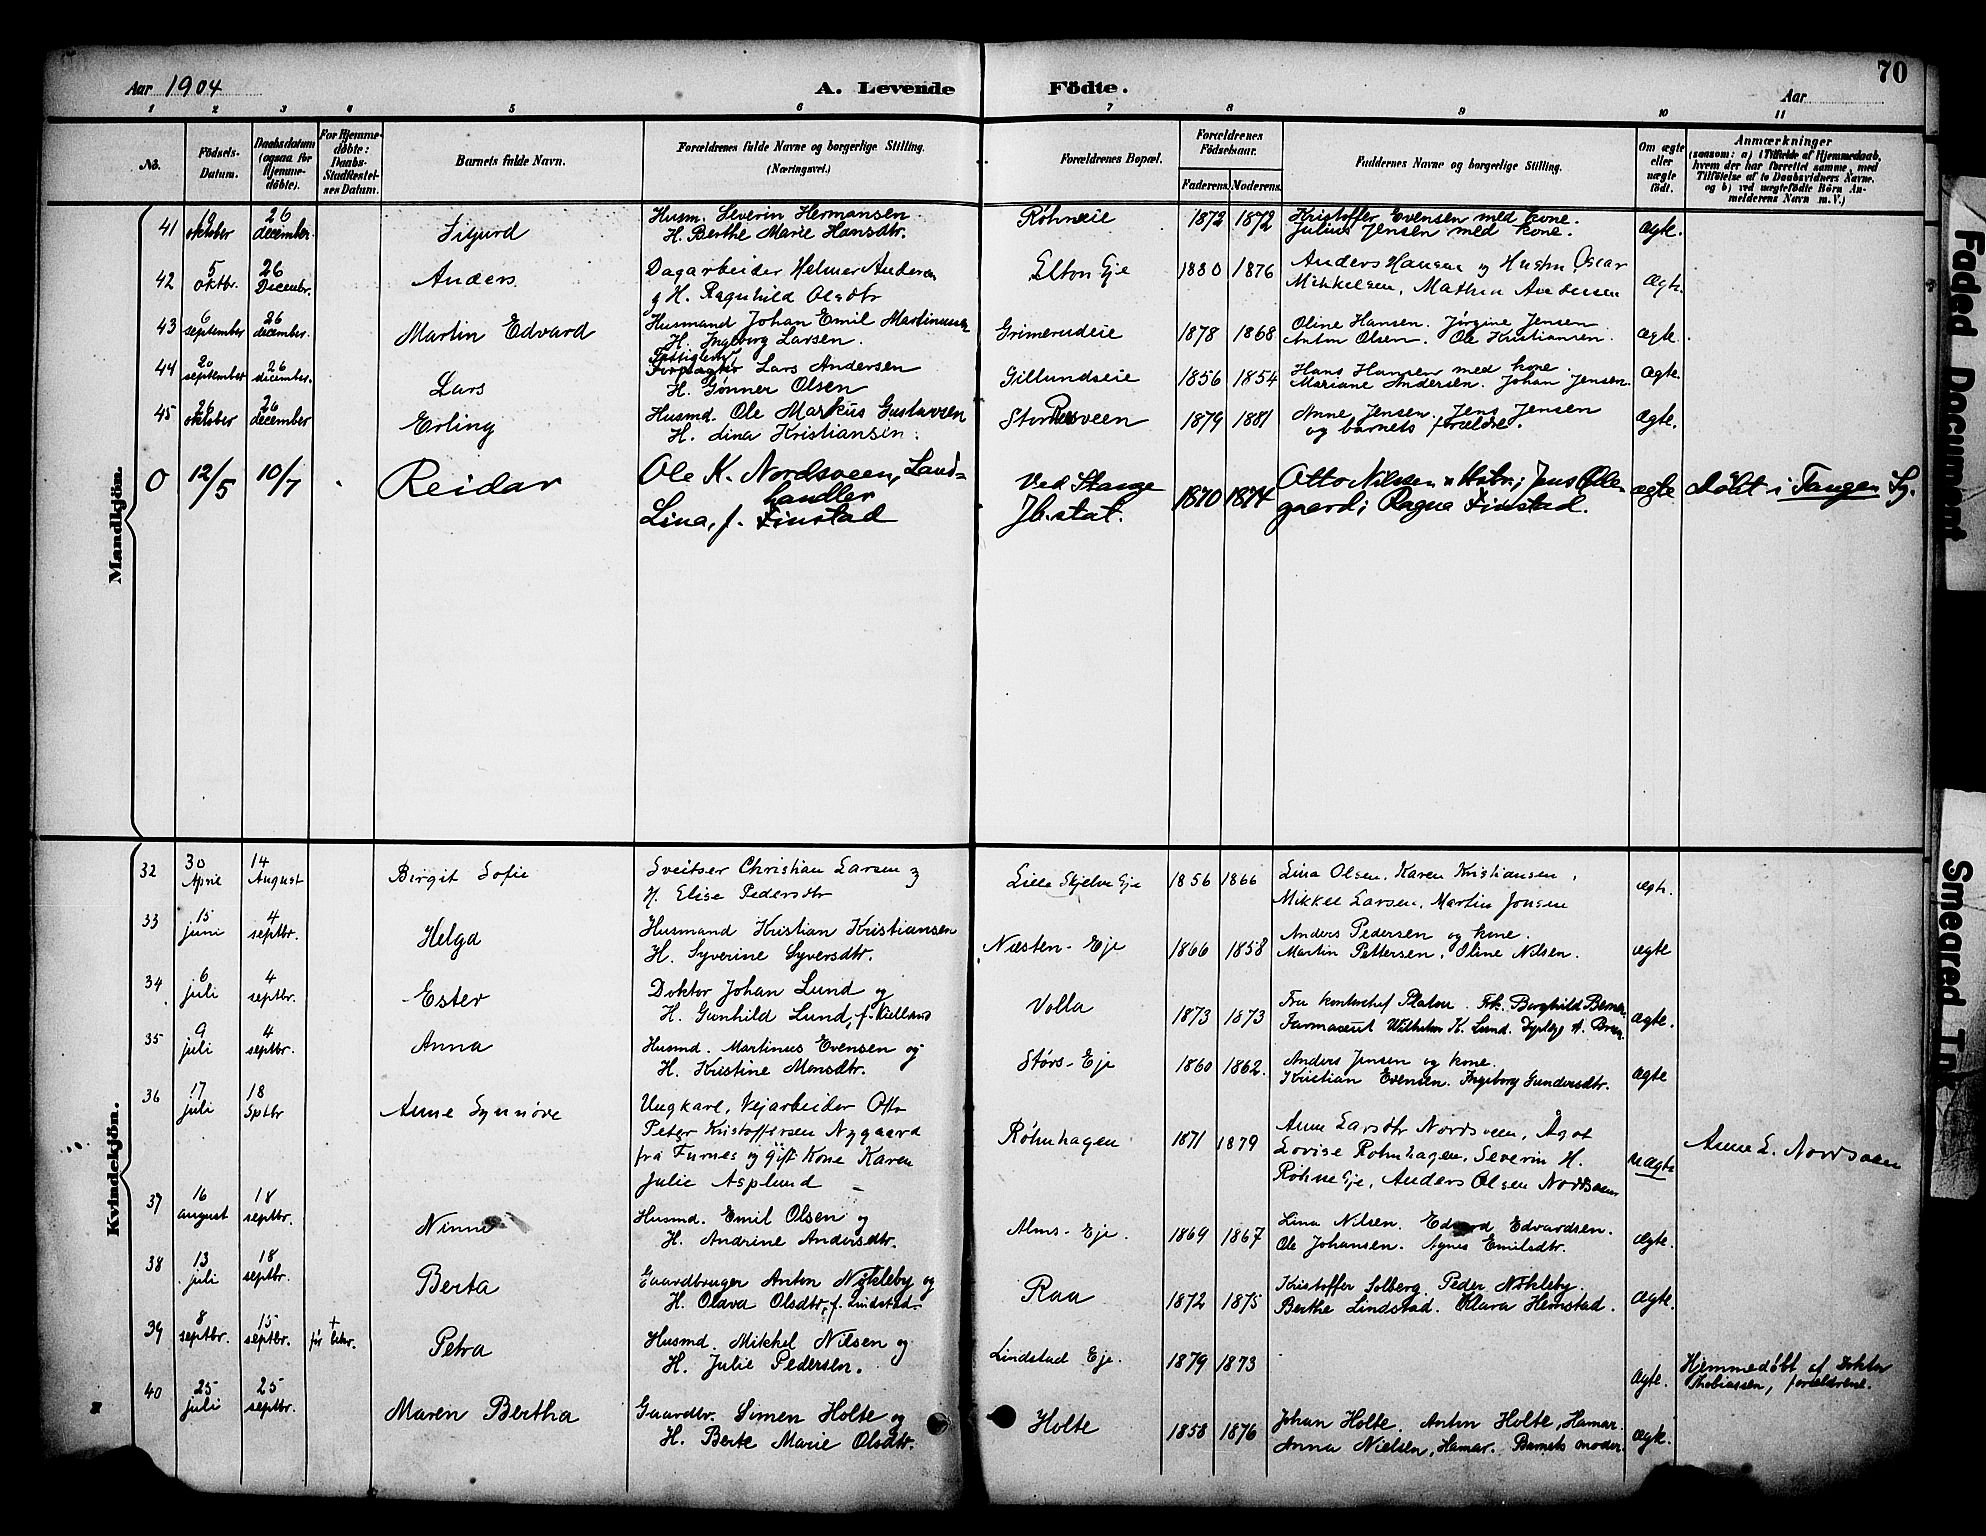 Aar 1904
A. Levende Födte.
Aar
70
1 2 3 4 5 6 7 8 9 10 11
No.
Födsels-Datum.
Daabsdatum (ogsaa for Hjemme-döbte).
For Hjemme-döbte: Daabs-Stadfæstel-ses Datum.
Barnets fulde Navn.
Forældrenes fulde Navne og borgerlige Stilling. (Næringsvei.)
Forældrenes Bopæl.
Forældrenes Födselsaar.
Faderens. Moderens.
Faddernes Navne og borgerlige Stilling.
Om ægte eller uægte födt.
Anmærkninger
(saasom: a) i Tilfælde af Hjemmedaab, hvem der har forrettet samme, med Tilföielse af to Daabsvidners Navne, og b) ved uægtefödte Börn Anmelderens Navn m. V.)
Mandkjön.
41 9 oktober 26 december. Sigurd Husm. Severin Hermansen Røhneeie 1872 1872 Kristoffer Evensen med kone. ægte.
H. Berthe Marie Hansdtr. Julius Jensen med kone.
42 5 oktbr. 26 Decembr. Anders Dagarbeider Helmer Andersen Elton Eje 1880 1876 Anders Hansen og Hustru Oscar Ægte.
g H. Ragnhild Olsdtr Mikkelsen, Mathea Andersen
43 6 september 26 december. Martin Edvard Husmand Johan Emil Martinussen Grimerudeie 1878 1868 Oline Hansen. Jørgine Jensen Ægte.
H. Ingeborg Larsen. Anton Olsen. Ole Kristiansen.
44 20 september 26 december. Lars Lars Andersen Gillundseie 1856 1854 Hans Hansen med kone. Ægte.
H. Gønner Olsen Mariane Andersen. Johan Jensen.
45 26 oktober 26 december Erling Husmd. Ole Markus Gustavsen 1879 1881 Anne Jensen. Jens Jensen Ægte.
H. Lina Kristiansen. og barnets forældre.
0 12/5 10/7 Reidar Ole K. Nordsveen, Land- Ved Stange 1870 1874 Otto Nilsen Hstr; Jens Øde- ægte Døbt i Tangen
handler
Lina, f. Finstad Jb.stat. gaard; Ragna Finstad.
Kvindekjön.
32 30 April 14 August Birgit Sofie Sveitser Christian Larsen og Lille Skjelve Eje 1856 1866 Lina Olsen, Karen Kristiansen, ægte.
H. Elise Pedersdtr Mikkel Larsen, Martin Jonsen
33 15 juni 4 septbr. Helga Husmand Kristian Kristiansen Næsten-Eje 1866 1858 Anders Pedersen og kone. Ægte
H. Syverine Syversdtr. Martin Pettersen. Oline Nilsen.
34 6 juli 4 septbr. Ester Doktor Johan Lund og Volla 1873 1873 Fru kontorchef Platou. Frk. Borghild Ægte.
H. Gunhild Lund, f. Kielland Farmaceut Wilhelm K. Lund.
35 9 juli 4 septbr. Anna Husmd. Martinus Evensen og Støvs-Eje 1860 1862. Anders Jensen og kone. Ægte
H. Kristine Monsdtr. Kristian Evensen. Ingeborg Gundersdtr.
36 17 juli 18 Sptbr Anne Synnøve Ungkarl, Vejarbeider Otto Røhnhagen 1871 1879 Anne Larsdtr Nordsveen, Ågot uægte Anne L. Nordsveen
Peter Kristoffersen Nygaard Lovise Røhnhagen, Severin H.
fra Furnes og gift Kone Karen Røhne Eje, Anders Olsen Nordsveen
Julie Asplund
37 16 august 18 septbr. Ninni Husmd. Emil Olsen og Alms-Eje. 1869 1867 Lina Nilsen. Edvard Edvardsen. Ægte.
H. Andrine Andersdtr. Ole Johansen. Agnes Emilsdtr.
38 13 juli 18 septbr. Berta Gaardbruger Anton Nøkleby og Raa 1872 1875 Kristoffer Solberg. Peder Nøkleby. Ægte.
H. Olava Olsdtr, f. Lindstad. Berthe Lindstad. Klara Hemstad.
39 8 septbr. 15 septbr. + før bekr. Petra Husmd. Mikkel Nilsen og Lindstad Eje. 1879 1873 Ægte. Hjemmedøbt af Doktor
H. Julie Pedersen. Thobiassen, forældrene.
40 25 juli 25 septbr. Maren Bertha Gaardbr. Simen Holte og Holte 1858 1876 Johan Holte. Anton Holte, Hamar. Ægte.
H. Berte Marie Olsdtr. Anna Nielsen, Hamar. Barnets moder.
Faded Document
Smeared Ink